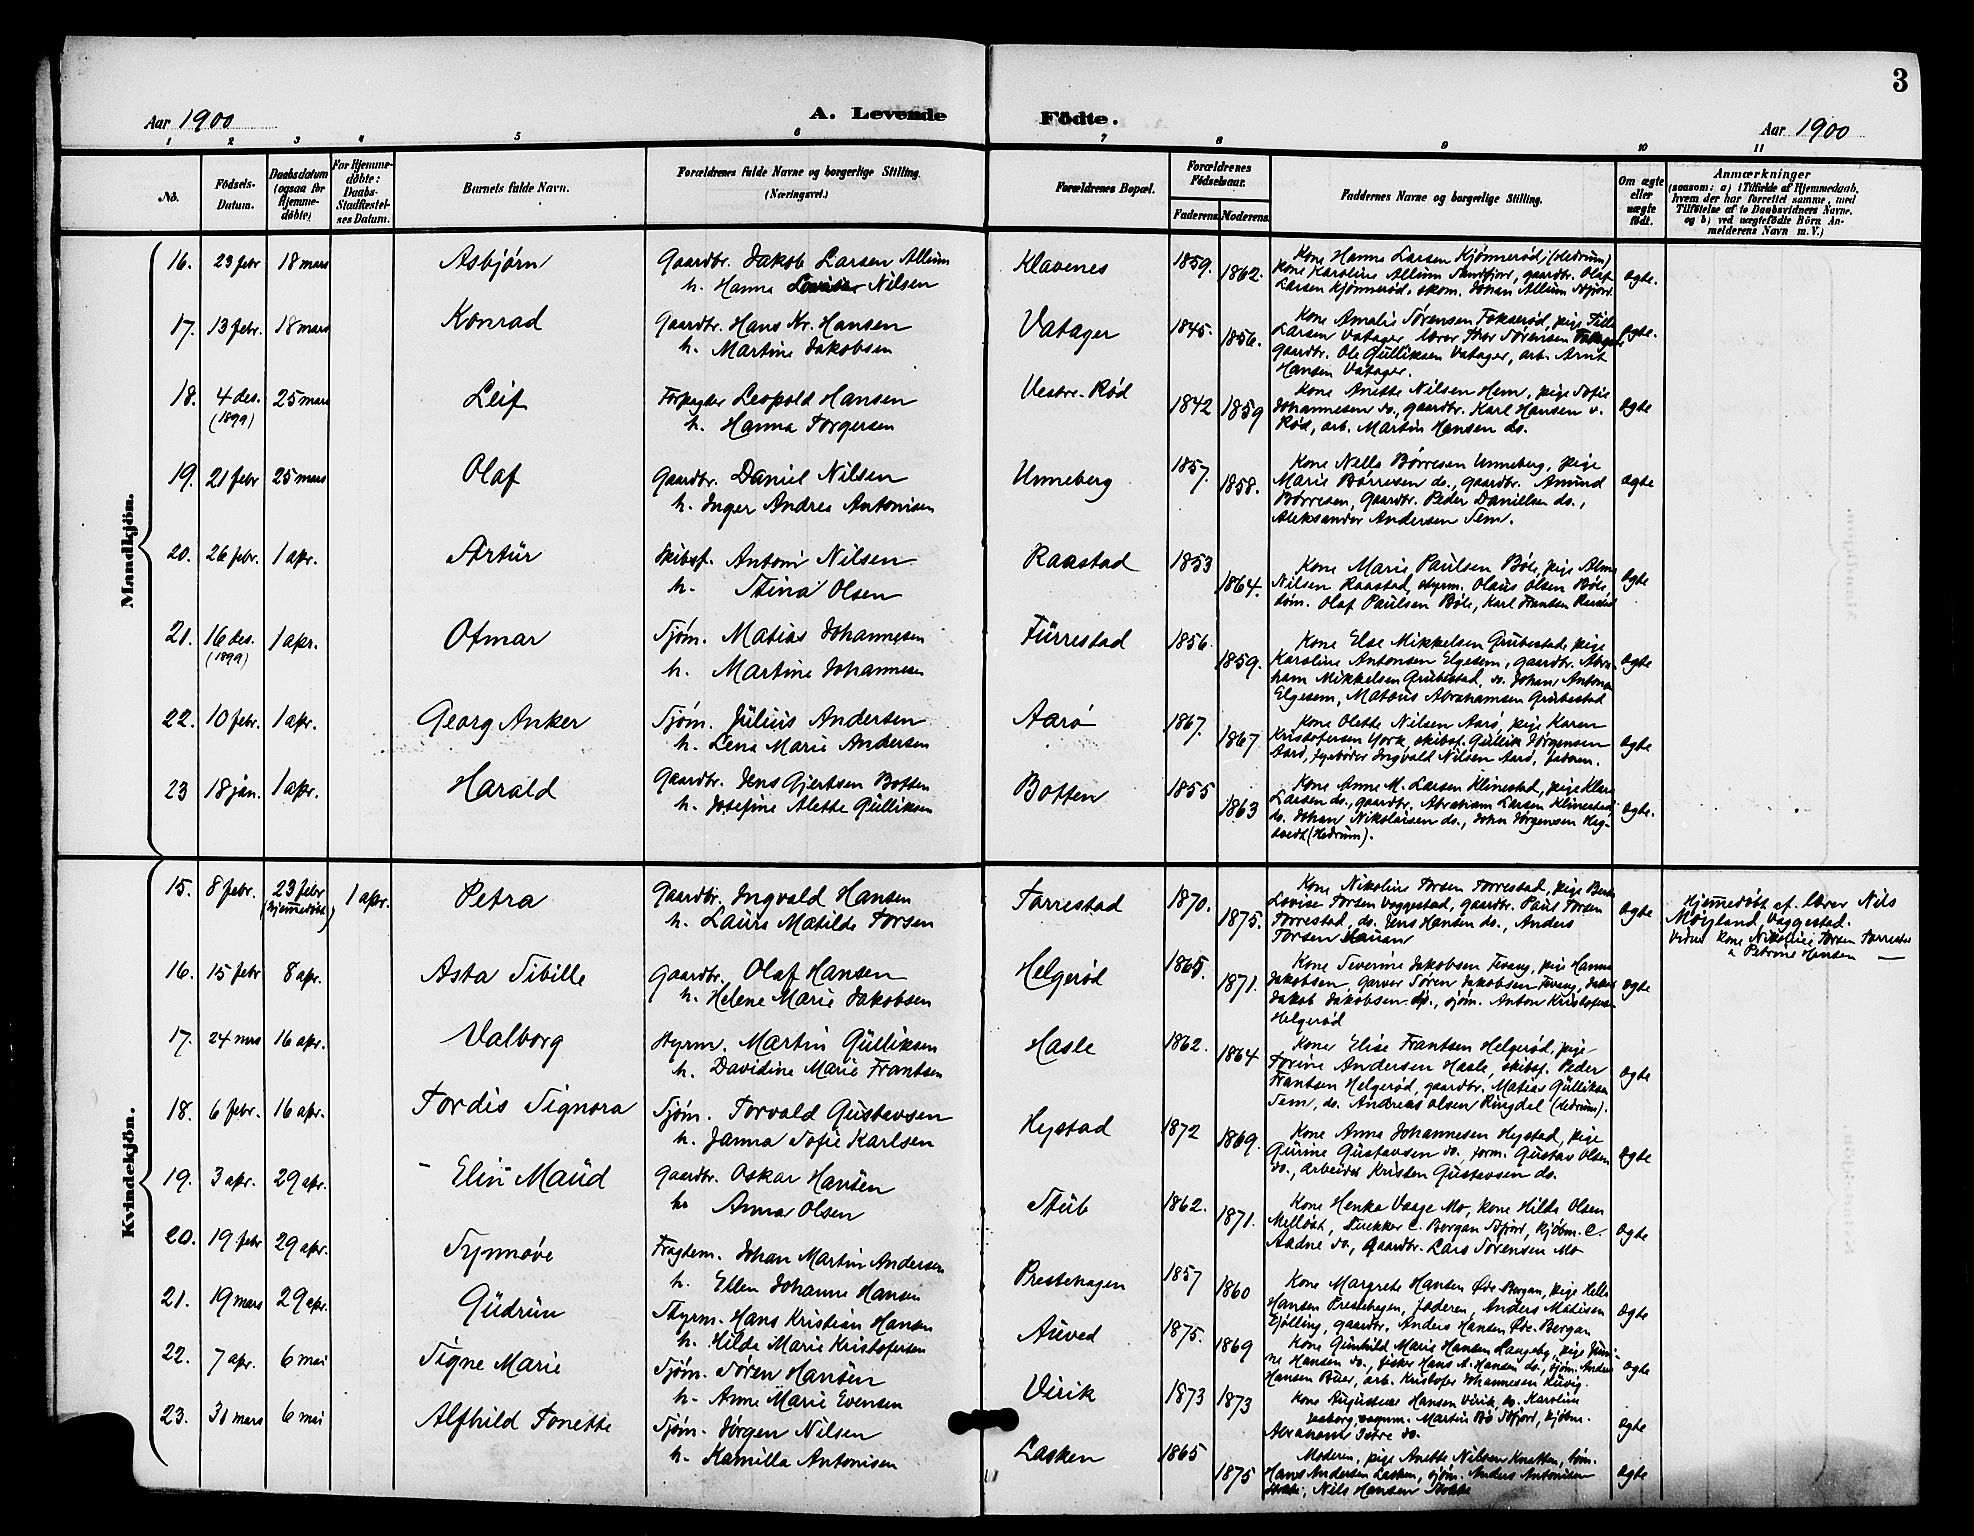 3
Aar 1900 A. Levende Födte. Aar 1900
1 2 3 4 5 6 7 8 9 10 11
No. Födsels-Datum. Daabsdatum (ogsaa for Hjemme-döbte) For Hjemme-döbte: Daabs-Stadfæstel-ses Datum. Barnets fulde Navn. Forældrenes fulde Navne og borgerlige Stilling. (Næringsvei.) Forældrenes Bopæl. Forældrenes Fødselsaar. Faderens Moderens. Faddernes Navne og borgerlige Stilling. Om ægte eller uægte födt. Anmærkninger (saasom: a) i Tilfælde af Hjemmedaab, hvem der har forrettet samme, med Tilföielse af to Daabsvidners Navne, og b) ved uægtefödte Börn Anmelderens Navn m. V.)
Mandkjön.
16. 23 febr 18 mars Asbjørn Gaardbr. Jakob Larsen Allum
h. Hanna Nilsen
Klavenes 1859. 1862.
Kone Hanna Larsen Kjønnerød, (Hedrum)
Kone Karoline Allum Sandfjord, gaardbr. Olaf
Larsen Kjønnerød, skom. Johan Allum Sfjord.
ægte.
17. 13 febr. 18 mars Konrad Gaardbr. Hans Kr. Hansen
h. Martine Jakobsen
Vatager 1845. 1856.
Kone Amalie Sørensen Fokserød, pige Tille
Larsen Vatager, lærer Thor Sørensen
gaardbr. Ole Gulliksen Vatager, arb. Arnt
Hansen Vatager.
ægte.
18. 4 des. (1899) 25 mars Leif Forpagter Leopold Hansen
h. Hanna Torgersen
Vestre-Rød 1842 1859
Kone Anette Nilsen Hem, pige Sofie
Johannesen do., gaardbr. Karl Hansen v.
Rød, arb. Martin Hansen do.
ægte
19. 21 febr 25 mars Olaf Gaardbr. Daniel Nilsen
h. Inger Andrea Antonisen
Unneberg 1857. 1858.
Kone Nella Børresen Unneberg, pige
Marie Børresen do., gaardbr. Amund
Børresen, Gaardbr. Peder Danielsen do.,
Aleksander Andersen Tem.
ægte
20. 26 febr. 1 apr. Artur Skibsf. Anton Nilsen
h. Stina Olsen
Raastad 1853 1864.
Kone Marie Paulsen Bøle, pige Alma
Nilsen Raastad, styrm. Olaus Olsen Bøle,
tøm. Olaf Paulsen Bøle, Karl Frantsen Raastad
ægte
21. 16 des. (1899) 1 apr. Otmar Sjøm. Matias Johannesen
h. Martine Johannesen
Furrestad 1856 1859.
Kone Else Mikkelsen Grubestad, pige
Karoline Antonsen Elgesem, gaardbr. Abra-
ham Mikkelsen Grubestad, do. Johan Antonsen
Elgesem, Mataus Abrahamsen Grubestad
ægte
22. 10 febr. 1 apr. Georg Anker Sjøm. Julius Andersen
h. Lena Marie Andersen
Aarø 1867. 1867
Kone Olette Nilsen Aarø, pige Karen
Kristofersen York, skibsf. Gullik Jørgensen
Aarø, fyrbøder Ingvald Nilsen Aarø, faderen.
ægte
23 18 jan. 1 apr. Harald Gaardbr. Jens Gjertsen Botten
h. Josefine Alette Gulliksen
Botten 1855 1863
Kone Anne M. Larsen Klinestad, pige Klara
Larsen do., gaardbr. Abraham Larsen Klinestad,
do. Johan Nikolaisen do., John Jørgensen Heg-
tvedt (Hedrum).
ægte.
Kvindekjön.
15. 8 febr. 23 febr (hjemmedøbt) 1 apr. Petra Gaardbr. Ingvald Hansen
h. Laura Matilde Torsen
Torrestad 1870. 1875.
Kone Nikoline Torsen Torrestad, pige
Lovise Torsen Vaggestad, gaardbr. Paul Torsen
Torrestad, do. Jens Hansen do., Anders
Torsen
ægte
Hjemmedøbt af lærer Nils
Møyland, Vaggestad.
Vidner kone Nikoline Torsen Torrestad
Petrine Hansen —
16. 15 febr 8 apr. Asta Sibille Gaardbr. Olaf Hansen
h. Helene Marie Jakobsen
Helgerød 1865. 1871.
Kone Severine Jakobsen Tvang, pige Hanna
Jakobsen, garver Søren Jakobsen Tvang,
Jakob Jakobsen do., sjøm. Anton Kristofersen
Helgerød
ægte
17. 24 mars 16 apr. Valborg Styrm. Martin Gulliksen
h. Davidine Marie Frantsen
Hasle 1862. 1864
Kone Elise Frantsen Helgerød, pige
Torine Andersen Hasle, skibsf. Peder
Frantsen Helgerød, gaardbr. Matias Gulliksen
Tem, do. Andreas Olsen Ringdal (Hedrum).
ægte
18. 6 febr. 16 apr. Tordis Signora Sjøm. Torvald Gustavsen
h. Janna Sofie Karlsen
Hystad 1872 1869.
Kone Anna Johannesen Hystad, pige
Gurine Gustavsen do. form. Gustav Olsen
do., arbeider Kristen Gustavsen do.
ægte
19. 3 apr. 29 apr. Elin Maud Gaardbr. Oskar Hansen
h. Anna Olsen
Stub 1862. 1871.
Kone Henka Vaage Mo, kone Hilda Olsen
Melløst, snekker C. Bergan Sfjord, kjøbm. C.
Aadne do., gaardbr. Lars Sørensen Mo
ægte
20. 19 febr 29 apr. Synnøve Fragtem. Johan Martin Andersen
h. Ellen Johanne Hansen
Prestehagen 1857 1860
Kone Margrete Hansen Øde-Bergan, pige Hella
Hansen Prestehagen, faderen, Anders Matisen
Gjølling, gaardbr. Anders Hansen Øde-Bergan
ægte
21. 19 mars 29 apr. Gudrun Styrm. Hans Kristian Hansen
h. Hilda Marie Kristofersen
Auved 1875. 1869
Kone Gunhild Marie Hansen Langeby, pige
Hansen do., fisker Hans A. Hansen do., sjøm. Anders
Hansen Buer, arb. Kristofer Johannesen
ægte
22. 7 apr. 6 mai Signe Marie Sjøm. Søren Hansen
h. Anne Marie Evensen
Virik 1873 1873
Kone Hansen Virik, do. Karoline
Martin Bø Sfjord, kjøbm.
Abraham do.
ægte
23. 31 mars 6 mai Alfhild Tonette Sjøm. Jørgen Nilsen
h. Kamilla Antonisen
Lasken 1865 1875
Moderen, pige Anette Nilsen Knatten, tøm.
Hans Andersen Lasken, sjøm. Anders Antonisen
Nils Hansen
ægte